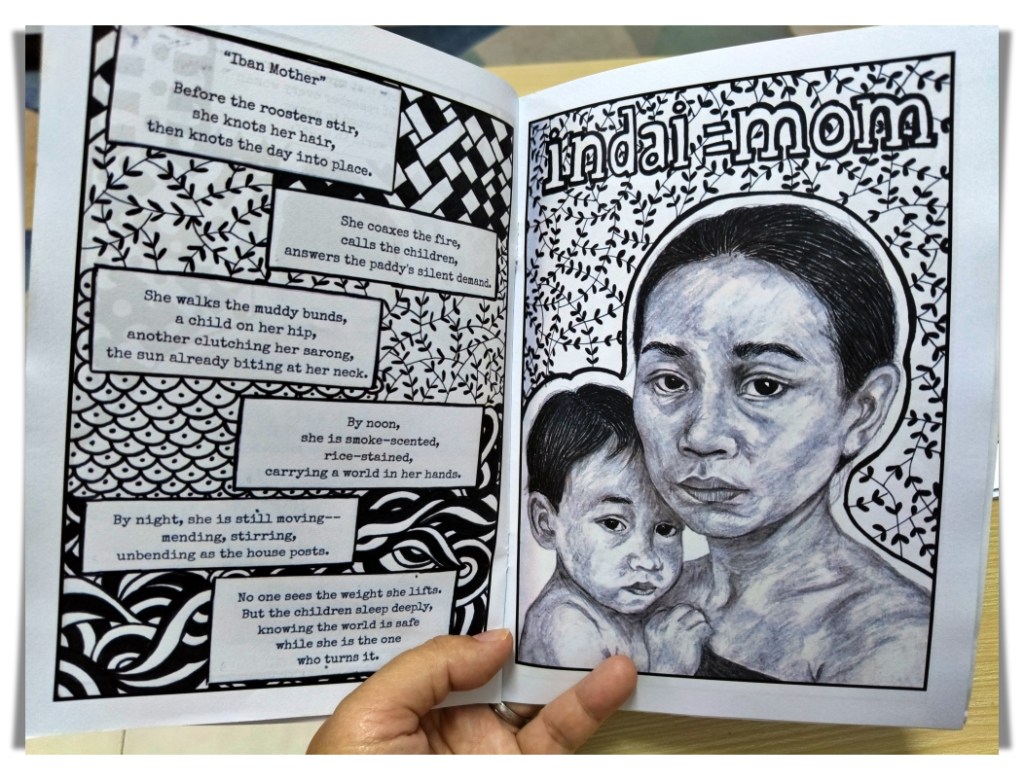 "Iban Mother"
Before the roosters stir,
she knots her hair,
then knots the day into place.
She coaxes the fire,
calls the children,
answers the paddy's silent demand.
She walks the muddy bunds,
a child on her hip,
another clutching her sarong,
the sun already biting at her neck.
By noon,
she is smoke-scented,
rice-stained,
carrying a world in her hands.
By night, she is still moving--
mending, stirring,
unbending as the house posts.
No one sees the weight she lifts.
But the children sleep deeply,
knowing the world is safe
while she is the one
who turns it.
indai=mom